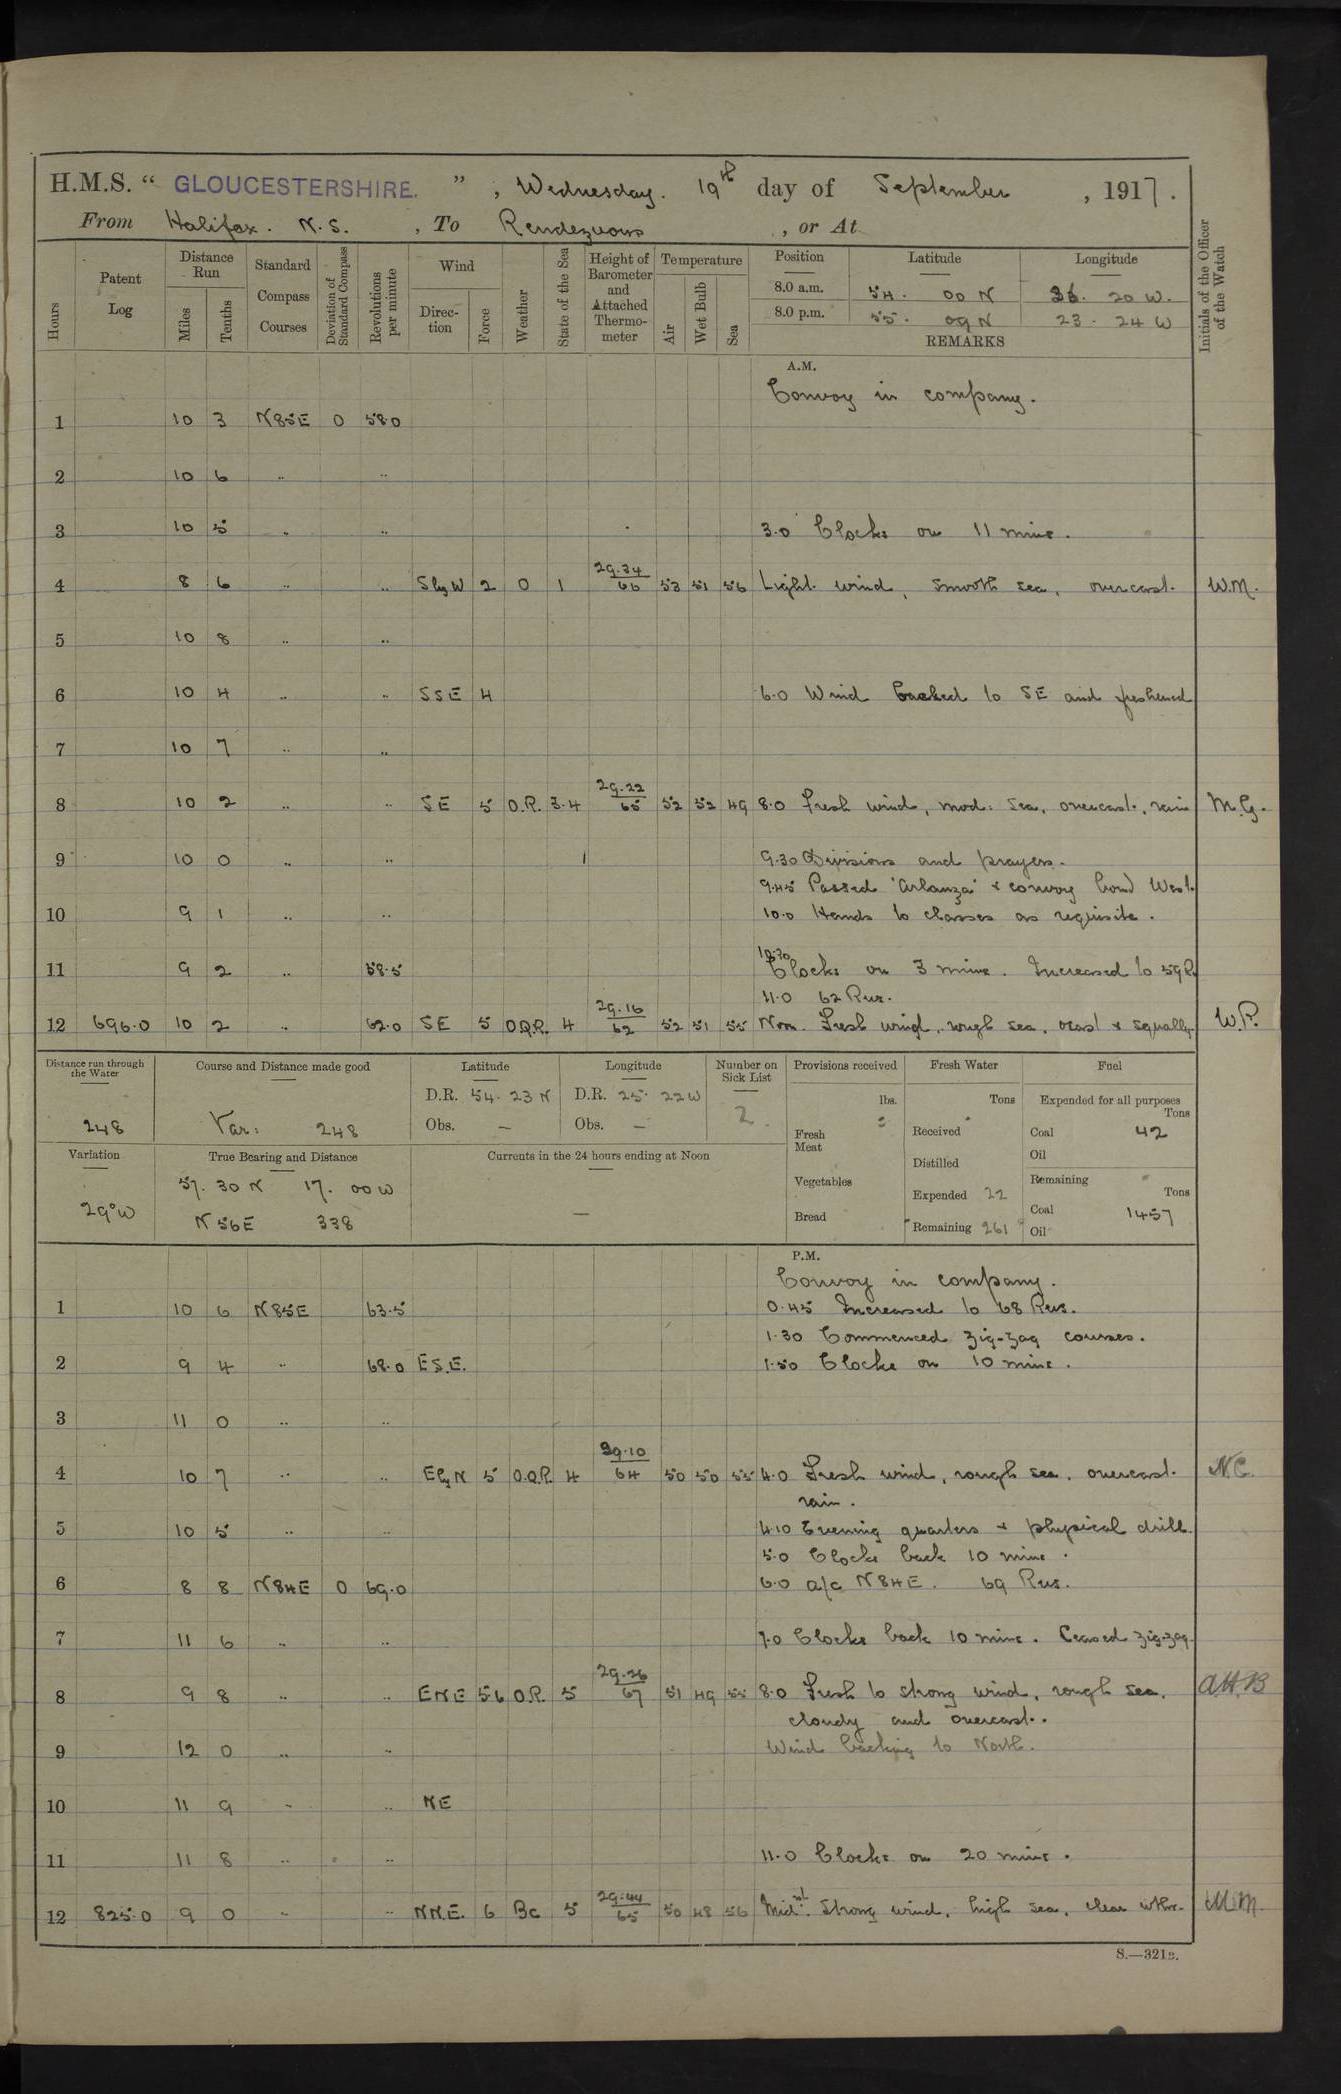 H.M.S. " GLOUCESTERSHIRE. " , Wednesday. 19th day of September , 1917.
From Halifax. N.S. , To Rendezvous , or At
Hours Patent Log Distance Run Miles Tenths Standard Compass Courses Deviation of Standard Compass Revolutions per minute Wind Direction Force Weather State of the Sea Height of Barometer and Attached Thermometer Temperature Air Wet Bulb Sea Position Latitude Longitude Initials of the Officer of the Watch
8.0 a.m. 54. 00 N 26. 20 W.
8.0 p.m. 55. 09 N 23. 24 W
REMARKS
A.M.
Convoy in company.
1 10 3 N85E 0 58.0
2 10 6 " "
3 10 5 " " 3.0 Clocks on 11 mins.
4 8 6 " " SbyW 2 0 1 29.34 66 53 51 56 Light wind, smooth sea, overcast. W.M.
5 10 8 " "
6 10 4 " " SSE 4 6.0 Wind backed to SE and freshened
7 10 7 " "
8 10 2 " " SE 5 O.R. 3.4 29.22 65 52 52 49 8.0 Fresh wind, mod: sea, overcast, rain M.G.
9 10 0 " " 9.30 Divisions and prayers.
9.45 Passed 'Arlanza' & convoy bound West.
10 9 1 " " 10.0 Hands to classes as requisite.
11 9 2 " 58.5 10.30 Clocks on 3 mins. Increased to 59 R.
11.0 62 Revs.
12 696.0 10 2 " 62.0 SE 5 O.Q.R. 4 29.16 62 52 51 55 Noon. Fresh wind, rough sea, ocast & squally. W.P.
Distance run through the Water 248
Course and Distance made good Var: 248
Latitude D.R. 54. 23 N Obs. —
Longitude D.R. 25. 22 W Obs. —
Number on Sick List 2
Provisions received lbs. Fresh Meat Vegetables Bread
Fresh Water Tons Received Distilled Expended 22 Remaining 261
Fuel Expended for all purposes Tons Coal 42 Oil Remaining Tons Coal 1457 Oil
Variation 29°W
True Bearing and Distance 57. 30 N 17. 00 W
N 56 E 338
Currents in the 24 hours ending at Noon —
P.M.
Convoy in company.
1 10 6 N85E 63.5 0.45 Increased to 68 Revs.
1.30 Commenced zig-zag courses.
2 9 4 " 68.0 E.S.E. 1.50 Clocks on 10 mins.
3 11 0 " "
4 10 7 " " EbyN 5 O.Q.R. 4 29.10 64 50 50 55 4.0 Fresh wind, rough sea, overcast. N.C.
rain.
5 10 5 " " 4.10 Evening quarters & physical drill.
5.0 Clocks back 10 mins.
6 8 8 N84E 0 69.0 6.0 a/c N84E. 69 Revs.
7 11 6 " " 7.0 Clocks back 10 mins. Ceased zig-zag.
8 9 8 " " ENE 5.6 O.R. 5 29.26 67 51 49 55 8.0 Fresh to strong wind, rough sea, A.H.B
cloudy and overcast.
9 12 0 " " Wind backing to North.
10 11 9 " " NE
11 11 8 " " 11.0 Clocks on 20 mins.
12 825.0 9 0 " " NNE. 6 Bc 5 29.44 65 50 48 56 Midnt. Strong wind, high sea, clear wthr. M.M.
S.—321B.